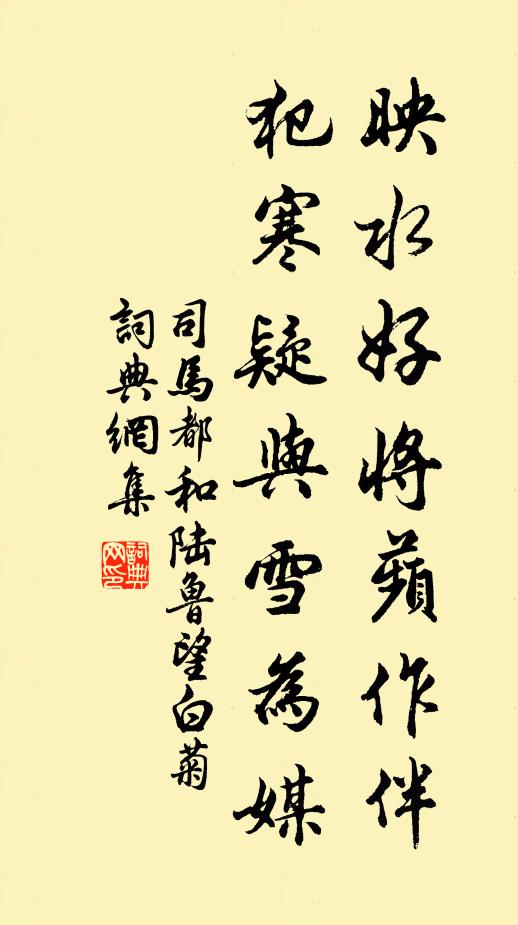 映水好將蘋作伴
犯寒疑與雪為媒
司馬都和陆魯望白菊
詞典網集
詞典网印